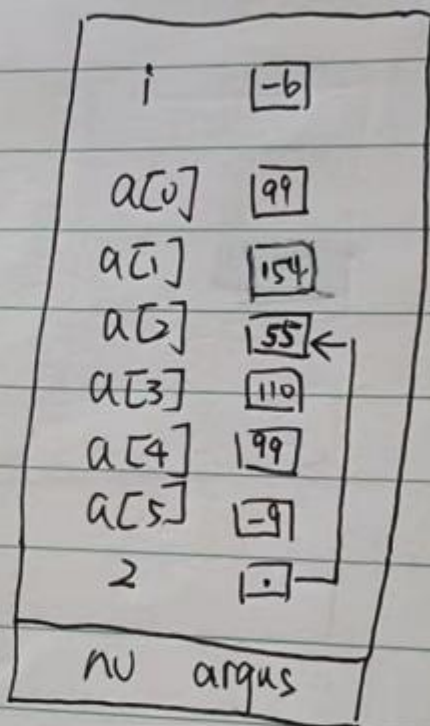 i -6
a[0] 99
a[1] 154
a[2] 55
a[3] 110
a[4] 99
a[5] -9
2 .
no argus